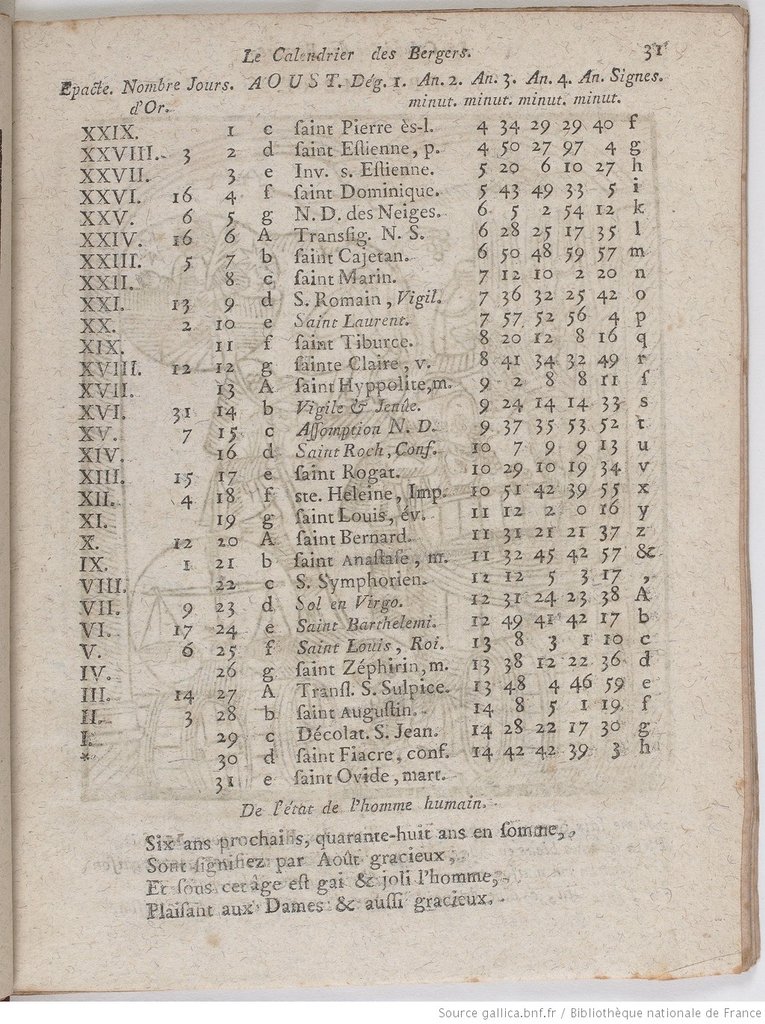 Le Calendrier des Bergers. 31
Epacte. Nombre Jours. AOUST. Dég. 1. An. 2. An. 3. An. 4. An. Signes.
d'Or. minut. minut. minut. minut.
XXIX. 1 c ſaint Pierre ès-l. 4 34 29 29 40 f
XXVIII. 3 2 d ſaint Eſtienne, p. 4 50 27 97 4 g
XXVII. 3 e Inv. s. Eſtienne. 5 20 6 10 27 h
XXVI. 16 4 f ſaint Dominique. 5 43 49 33 5 i
XXV. 6 5 g N. D. des Neiges. 6 5 2 54 12 k
XXIV. 16 6 A Transfig. N. S. 6 28 25 17 35 l
XXIII. 5 7 b ſaint Cajetan. 6 50 48 59 57 m
XXII. 8 c ſaint Marin. 7 12 10 2 20 n
XXI. 13 9 d S. Romain, Vigil. 7 36 32 25 42 o
XX. 2 10 e Saint Laurent. 7 57 52 56 4 p
XIX. 11 f ſaint Tiburce. 8 20 12 8 16 q
XVIII. 12 12 g ſainte Claire, v. 8 41 34 32 49 r
XVII. 13 A ſaint Hyppolite, m. 9 2 8 8 11 ſ
XVI. 31 14 b Vigile & Jeûne. 9 24 14 14 33 s
XV. 7 15 c Aſſomption N. D. 9 37 35 53 52 t
XIV. 16 d Saint Roch, Conf. 10 7 9 9 13 u
XIII. 15 17 e ſaint Rogat. 10 29 10 19 34 v
XII. 4 18 f ste. Héleine, Imp. 10 51 42 39 55 x
XI. 19 g ſaint Louis, év. 11 12 2 0 16 y
X. 12 20 A ſaint Bernard. 11 31 21 21 37 z
IX. 1 21 b ſaint Anaſtaſe, m. 11 32 45 42 57 &
VIII. 22 c S. Symphorien. 12 12 5 3 17 ,
VII. 9 23 d Sol en Virgo. 12 31 24 23 38 A
VI. 17 24 e Saint Barthelemi. 12 49 41 42 17 b
V. 6 25 f Saint Louis, Roi. 13 8 3 1 10 c
IV. 26 g ſaint Zéphirin, m. 13 38 12 22 36 d
III. 14 27 A Tranſl. S. Sulpice. 13 48 4 46 59 e
II. 3 28 b ſaint Auguſtin. 14 8 5 1 19 f
I. 29 c Décolat. S. Jean. 14 28 22 17 30 g
* 30 d ſaint Fiacre, conf. 14 42 42 39 3 h
31 e ſaint Ovide, mart.
De l'état de l'homme humain.
Six ans prochains, quarante-huit ans en ſomme,
Sont ſignifiez par Août gracieux,
Et ſous cet âge eſt gai & joli l'homme,
Plaiſant aux Dames & auſſi gracieux.
Source gallica.bnf.fr / Bibliothèque nationale de France